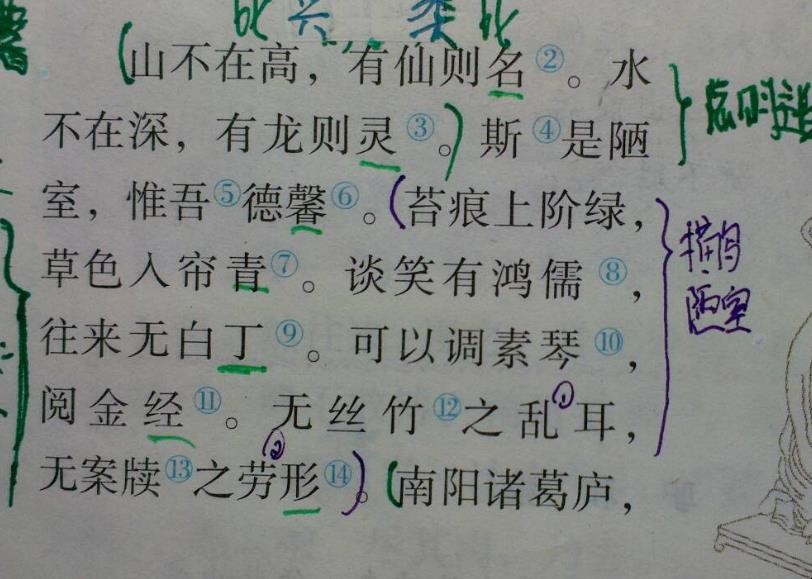 比 兴 类比
馨
(山不在高，有仙则名②。水
不在深，有龙则灵③。) 斯④是陋
室，惟吾⑤德馨⑥。(苔痕上阶绿，
草色入帘青⑦。谈笑有鸿儒⑧，
往来无白丁⑨。可以调素琴⑩，
阅金经⑪。无丝竹⑫之乱①耳，
无案牍⑬之劳②形⑭)。(南阳诸葛庐，
点明
描写
陋室